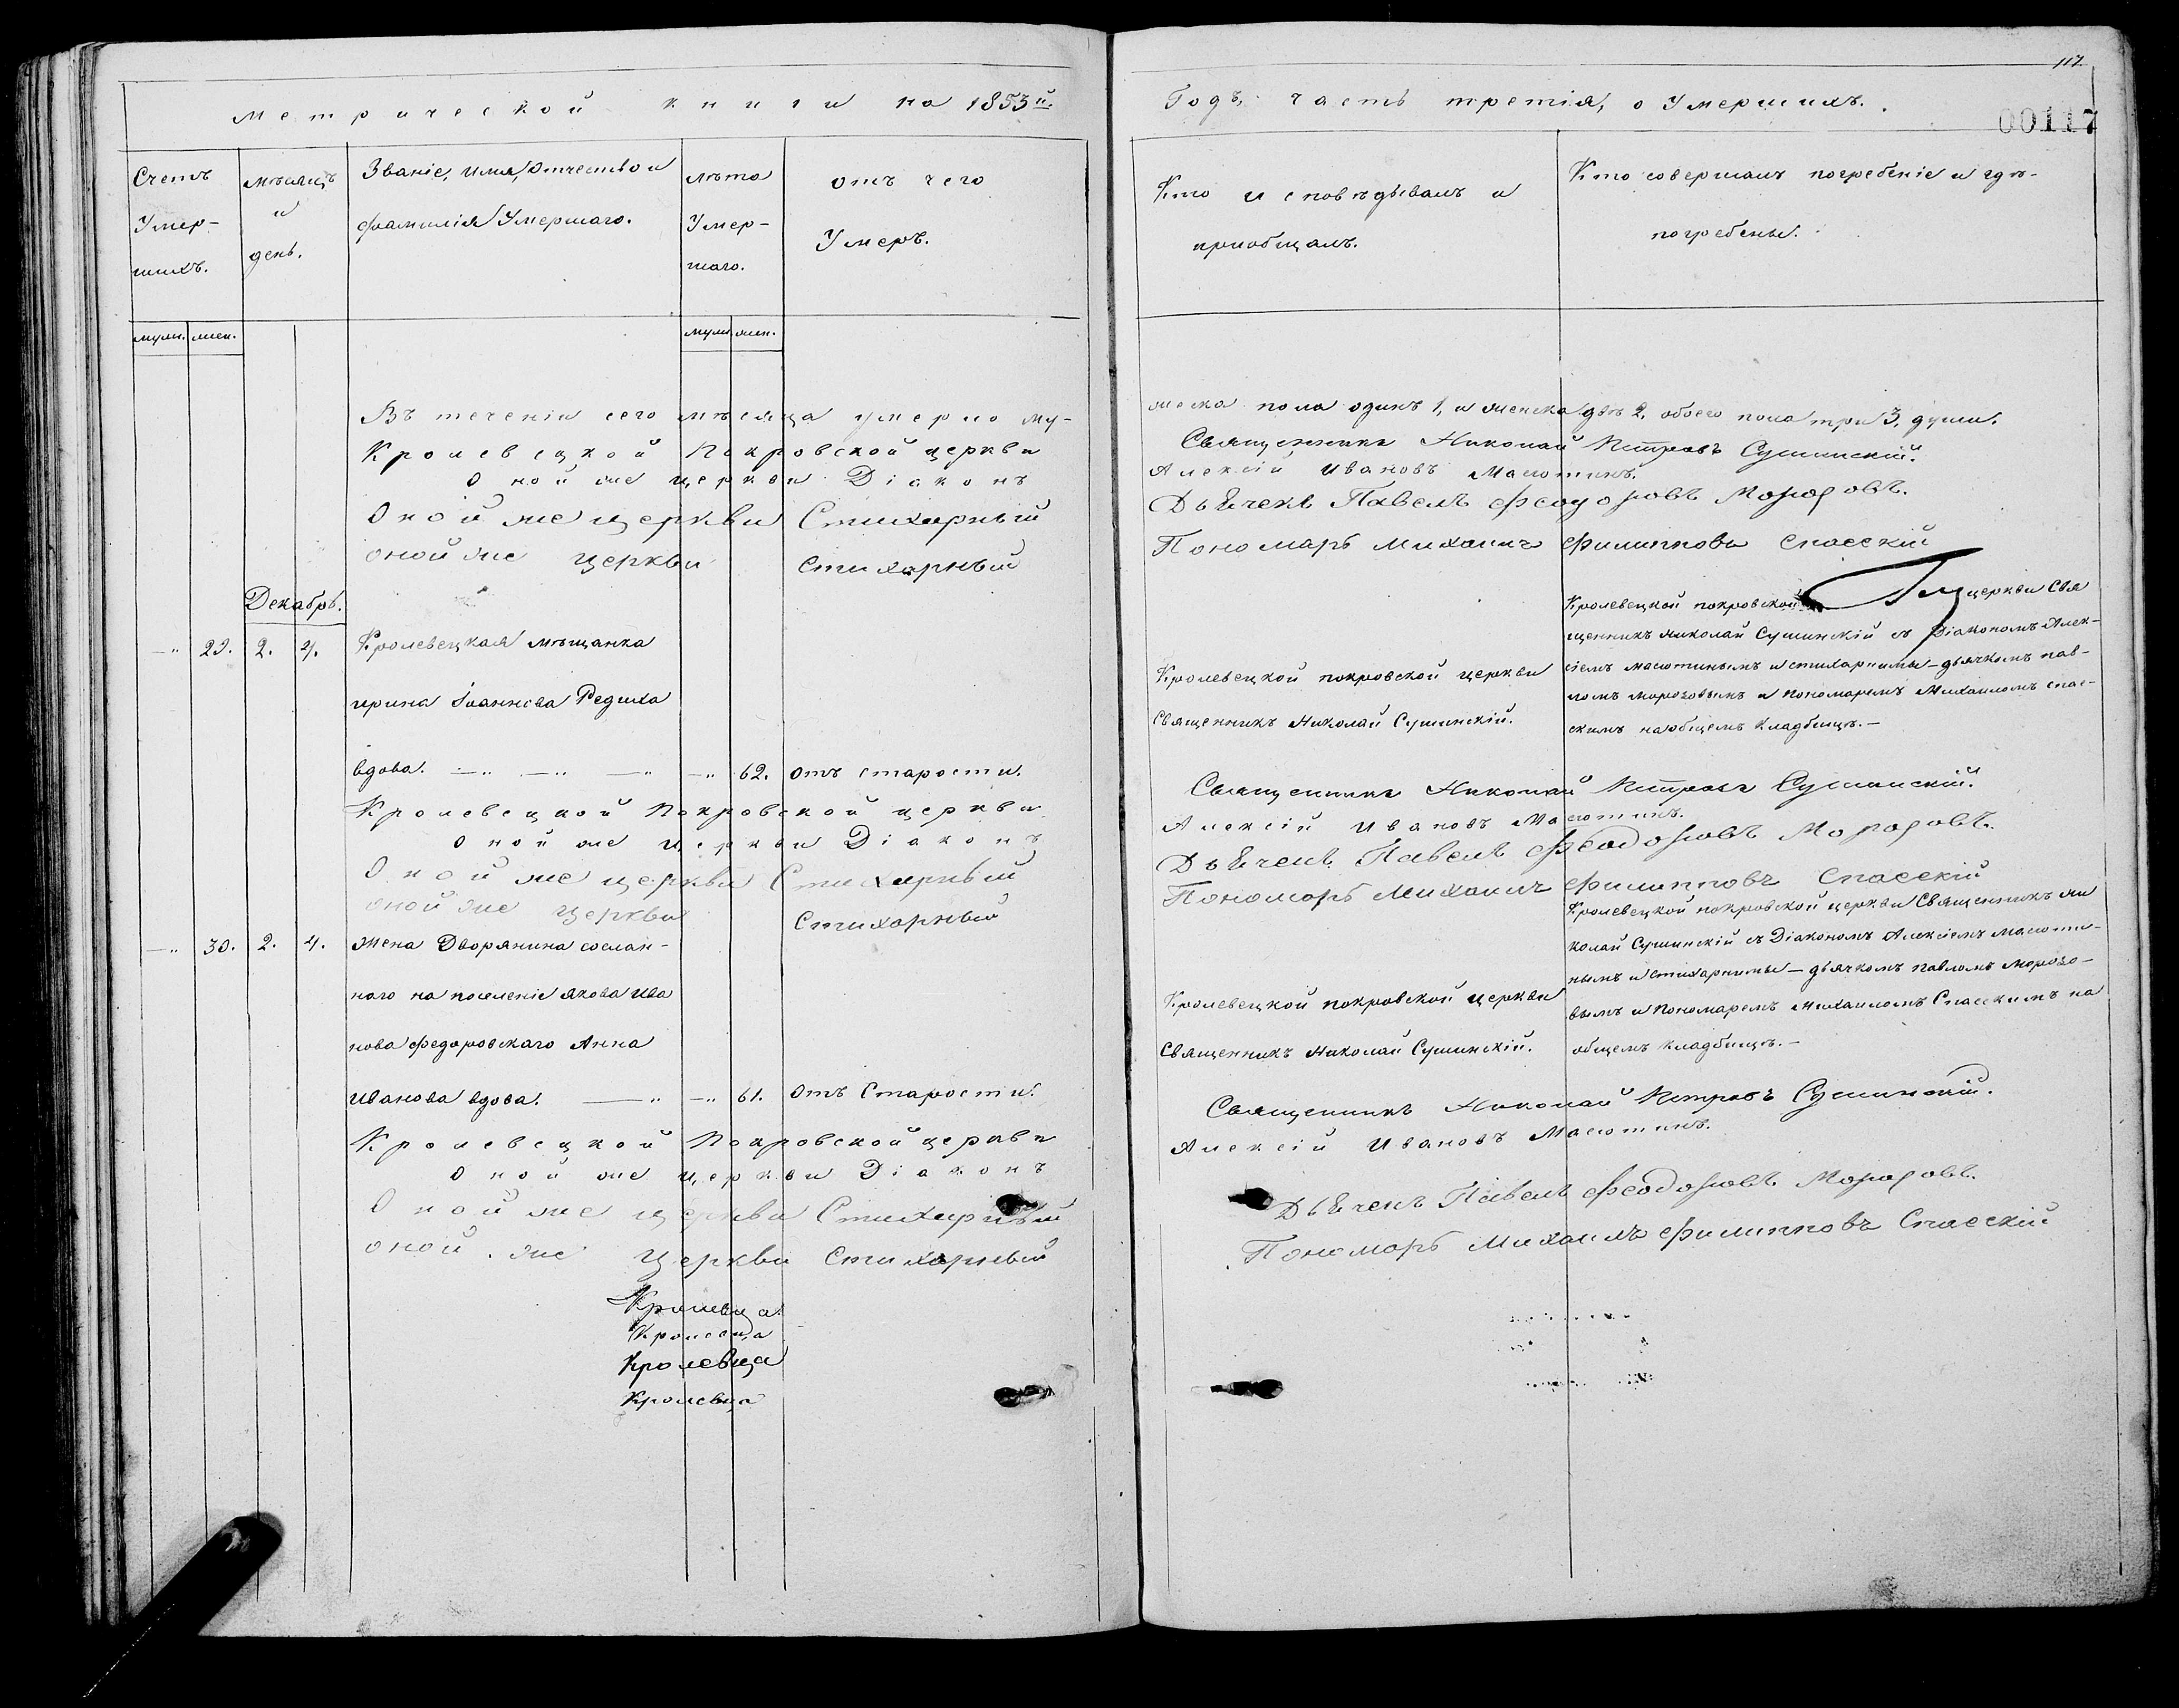 117.
00117
Метрической книги на 1853й.
Годъ, часть третія, о Умершихъ.
Счетъ Умер-шихъ.
мѣсяцъ и день.
Званіе, имя, Отчество и фамилія Умершаго.
лѣта Умер-шаго.
отъ чего Умеръ.
Кто исповѣдывалъ и приобщалъ.
Кто совершалъ погребеніе и гдѣ-погребены.
муж. жен.
муж. жен.
Въ теченіи сего мѣсяца умерло му-
жеска пола одинъ 1, и женска двѣ 2, обоего пола три 3, души.
Кролевецкой Покровской церкви
Священникъ Николай Петровъ Сушинскій.
Оной же церкви Діаконъ
Алексій Ивановъ Масютинъ.
Оной же церкви Стихарный
Дьячекъ Павелъ Феодоровъ Морозовъ.
оной же церкви стихарный
Пономарь Михаилъ Филипповъ Спасскій
Декабрь.
29. 2. 4.
Кролевецкая мѣщанка
ирина Іоаннова Редиха
вдова. 62. отъ старости.
Кролевецкой покровской церкви
Священникъ Николай Сушинскій.
Кролевецкой покровской церкви Свя
щенникъ николай Сушинскій съ Діакономъ Алек-
сіемъ масютинымъ и стихарными-дьячкомъ пав-
ломъ морозовымъ и пономаремъ Михаиломъ спас-
скимъ на общемъ кладбищѣ.-
Кролевецкой Покровской церкви
Священникъ Николай Петровъ Сушинскій.
Оной же церкви Діаконъ
Алексій Ивановъ Масютинъ.
Оной же церкви Стихарный
Дьячекъ Павелъ Феодоровъ Морозовъ.
оной же церкви стихарный
Пономарь Михаилъ Филипповъ Спасскій
30. 2. 4.
Жена Дворянина сослан-
наго на поселеніе якова Ива
нова Федоровскаго Анна
Иванова вдова. 61. Отъ Старости.
Кролевецкой покровской церкви
Священникъ Николай Сушинскій.
Кролевецкой покровской церкви Священникъ ни
колай Сушинскій съ Діакономъ Алексіемъ масюти-
нымъ и стихарными-дьячкомъ павломъ морозо-
вымъ и пономаремъ михаиломъ Спасскимъ на
общемъ кладбищѣ.-
Кролевецкой Покровской церкви
Священникъ Николай Петровъ Сушинскій.
Оной же церкви Діаконъ
Алексій Ивановъ Масютинъ.
Оной же церкви Стихарный
Дьячекъ Павелъ Феодоровъ Морозовъ.
оной же церкви стихарный
Пономарь Михаилъ Филипповъ Спасскій
Кролевца
Кролевца
Кролевца
Кролевца